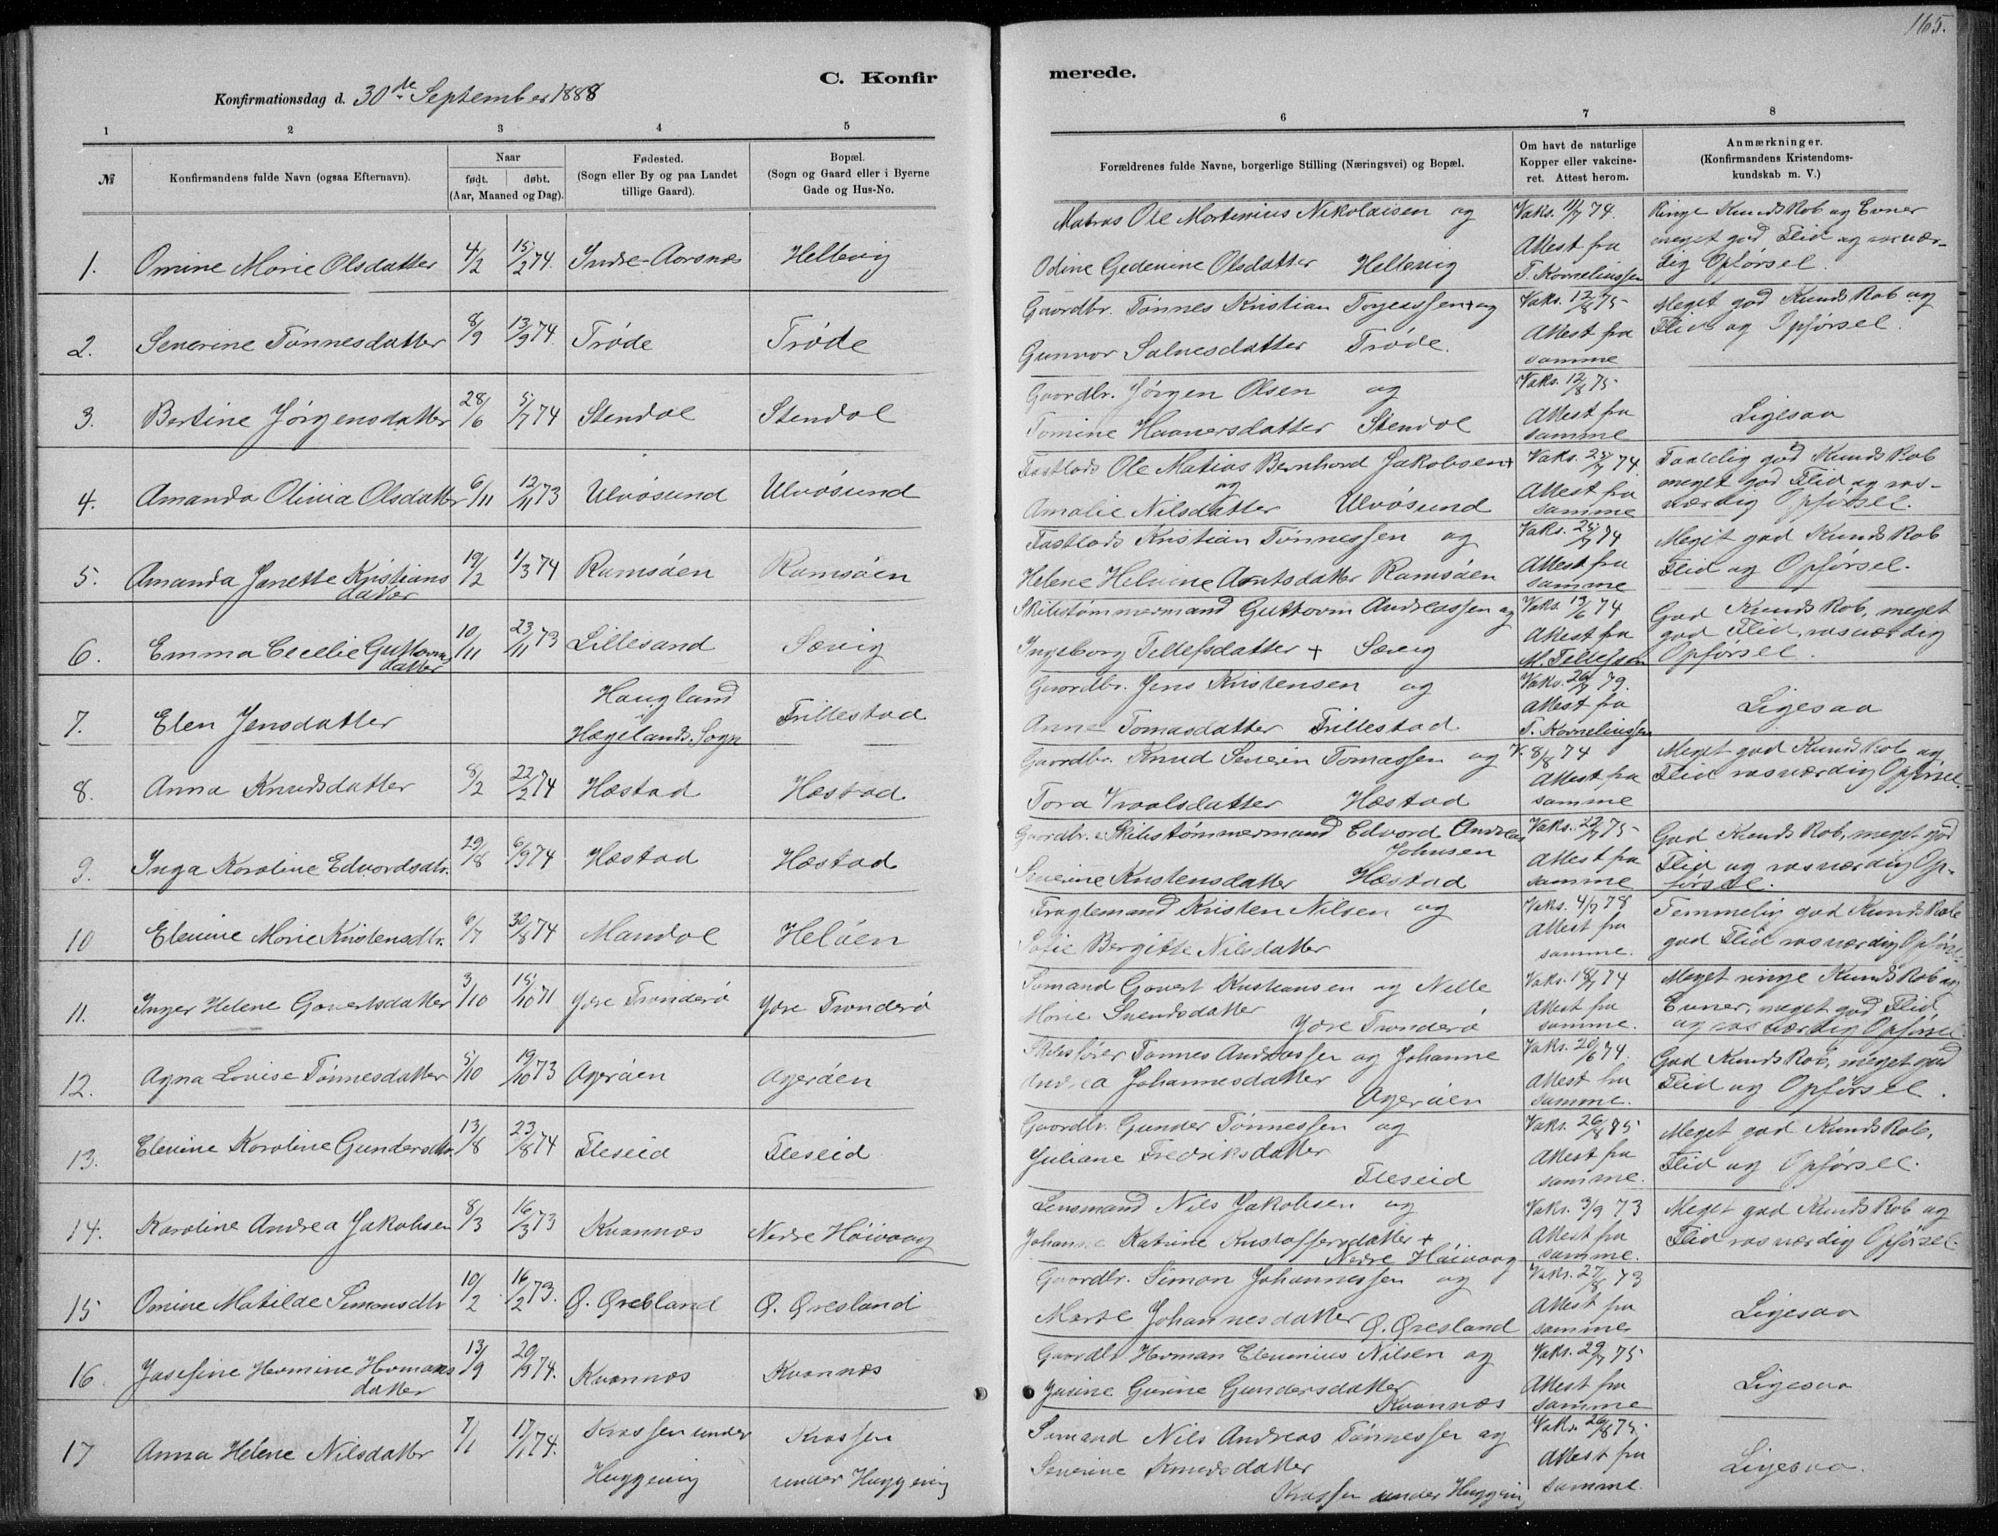 165.
C. Konfirmerede.
Konfirmationsdag d. 30de September 1888
1 2 3 4 5 6 7 8
№
Konfirmandens fulde Navn (ogsaa Efternavn).
Naar
født. døbt.
(Aar, Maaned og Dag).
Fødested.
(Sogn eller By og paa Landet
tillige Gaard).
Bopæl.
(Sogn og Gaard eller i Byerne
Gade og Hus-No.
Forældrenes fulde Navne, borgerlige Stilling (Næringsvei) og Bopæl.
Om havt de naturlige
Kopper eller vakcine-
ret. Attest herom.
Anmærkninger.
(Konfirmandens Kristendoms-
kundskab m. V.)
1. Omine Marie Olsdatter 4/2 15/2 74. Indre-Aarsnæs Hellevig
Matros Ole Mortinius Nikolaisen og
Odine Gedenine Olsdatter Hellevig
Vaks. 11/7 74.
Attest fra
T. Korneliussen
Ringe Kundskab og Evner
meget god Flid og rosvær-
dig Opførsel.
2. Severine Tønnesdatter 8/9 13/9 74. Trøde Trøde
Gaardbr. Tønnes Kristian Torjussen + og
Gunvor Salvesdatter Trøde.
Vaks. 12/8 75
Attest fra
samme
Meget god Kundskab og
Flid og Opførsel.
3. Bertine Jørgensdatter 28/6 5/7 74 Stendal Stendal
Gaardbr. Jørgen Olsen og
Tomine Haaversdatter Stendal
Vaks. 12/8 75
Attest fra
samme
Ligesaa
4. Amanda Olivia Olsdatter 6/11 12/11 73 Ulvøsund Ulvøsund
Fastlods Ole Matias Bernhard Jakobsen +
og
Amalie Nilsdatter Ulvøsund
Vaks. 25/7 74.
Attest fra
samme
Taalelig god Kundskab
meget god Flid og ros-
værdig Opførsel.
5. Amanda Janette Kristians
datter 19/2 1/3 74 Ramsøen Ramsøen
Fastlods Kristian Tønnessen og
Helene Helvine Arntsdatter Ramsøen
Vaks. 25/7 74
Attest fra
samme
Meget god Kundskab
Flid og Opførsel.
6. Emma Cecilie Guttorms
datter 10/11 23/11 73 Lillesand Sævig
Skibstømmermand Guttorm Andreassen og
Ingeborg Tellefsdatter + Sævig
Vaks. 19/6 74
Attest fra
M. Tellefsen
God Kundskab, meget
god Flid, rosværdig
Opførsel.
7. Elen Jensdatter Haugland
i
Hægelands Sogn Trillestad
Gaardbr. Jens Kristensen og
Anne Tomasdatter Trillestad
Vaks. 26/7 79.
Attest fra
T. Kornelinssen
Ligesaa
8. Anna Knudsdatter 8/2 22/2 74 Hæstad Hæstad
Gaardbr. Knud Severin Tomassen og
Tora Vraalsdatter Hæstad
V. 8/8 74
Attest fra
samme
Meget god Kundskab og
Flid rosværdig Opførsel.
9. Inga Karoline Edvardsdtr. 29/8 6/9 74 Hæstad Hæstad
Gaardbr. & Skibstømmermand Edvard Andreas
Johnsen
Severine Kristensdatter Hæstad
Vaks. 22/7 75
Attest fra
samme
God Kundskab, meget god
Flid og rosværdig Op-
førsel.
10 Elevine Marie Kristensdtr. 6/7 30/8 74 Mandal Heløen
Fragtemand Kristen Nilsen og
Sofie Bergitte Nilsdatter
Vaks. 4/7 78
Attest fra
samme.
Temmelig god Kundskab
god Flid rosværdig Opførsel
11. Inger Helene Govertsdatter 3/10 15/10 71 Ydre Tronderø Ydre Tronderø
Sømand Govert Kristiansen og Nelle
Marie Svendsdatter
Ydre Tronderø
Vaks. 18/7 74
Attest fra
samme.
Meget ringe Kundskab og
Evner, meget god Flid
og rosværdig Opførsel
12. Agna Lovise Tønnesdatter 5/10 19/10 73 Agerøen Agerøen
Skibsfører Tønnes Andreassen og Johanne
Andrea Johannesdatter
Agerøen
Vaks. 20/6 74.
Attest fra
samme.
God Kundskab, meget god
Flid og Opførsel.
13. Elevine Karoline Gundersdtr. 13/8 23/8 74 Fleseid Fleseid
Gaardbr. Gunder Tønnessen og
Juliane Fredriksdatter
Fleseid
Vaks. 26/8 75
Attest fra
samme.
Meget god Kundskab,
Flid og Opførsel.
14. Karoline Andrea Jakobsen 8/3 16/3 73 Kvannæs Nedre Høivaag
Lensmand Nils Jakobsen og
Johanne Katrine Kristoffersdatter +
Nedre Høivaag
Vaks. 3/9 73
Attest fra
samme.
Meget god Kundskab og
Flid rosværdig Opførsel.
15 Omine Matilde Simonsdtr 10/2 16/2 73. Ø. Øresland Ø. Øresland
Gaardbr. Simon Johannessen og
Marte Johannesdatter Ø. Øresland
Vaks. 27/8 73
Attest fra
samme
Ligesaa
16. Josefine Hermine Hermans
datter 13/9 20/9 74. Kvannæs Kvannæs
Gaardbr Herman Elevinius Nilsen og
Jasine Gurine Gundersdatter
Kvannæs
Vaks. 29/7 75
Attest fra
samme
Ligesaa
17 Anna Helene Nilsdatter 7/1 17/1 74. Krossen under
Huggevig Krossen
under Huggevig
Sømand Nils Andreas Tønnessen og
Severine Knudsdatter
Krossen under Huggevig
Vaks. 26/8 75
Attest fra
samme.
Ligesaa.